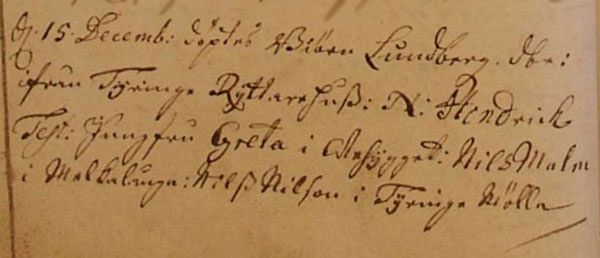 D. 15. Decemb: döptes Biörn Lundberg. dbr:
ifrån Tyringe Ryttarehuß: N: Hendrick
Test: Jungfru Greta i : Nils Malm
i Mälkalunga: Nilß Nilson i Tyringe Mölla